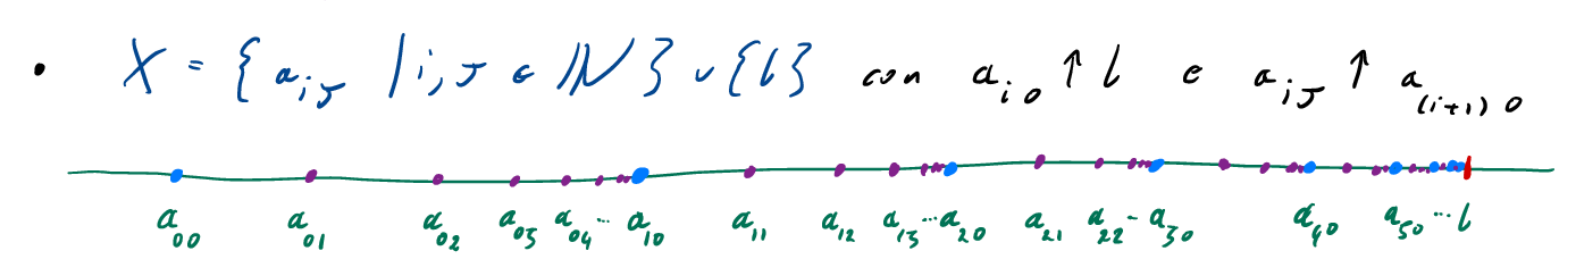 • X = { a_{ij} | i,j ∈ ℕ } ∪ {l} con a_{i0} ↑ l e a_{ij} ↑ a_{(i+1)0}
a_{00} a_{01} a_{02} a_{03} a_{04} ... a_{10} a_{11} a_{12} a_{13} ... a_{20} a_{21} a_{22} - a_{30} a_{40} a_{50} ... l